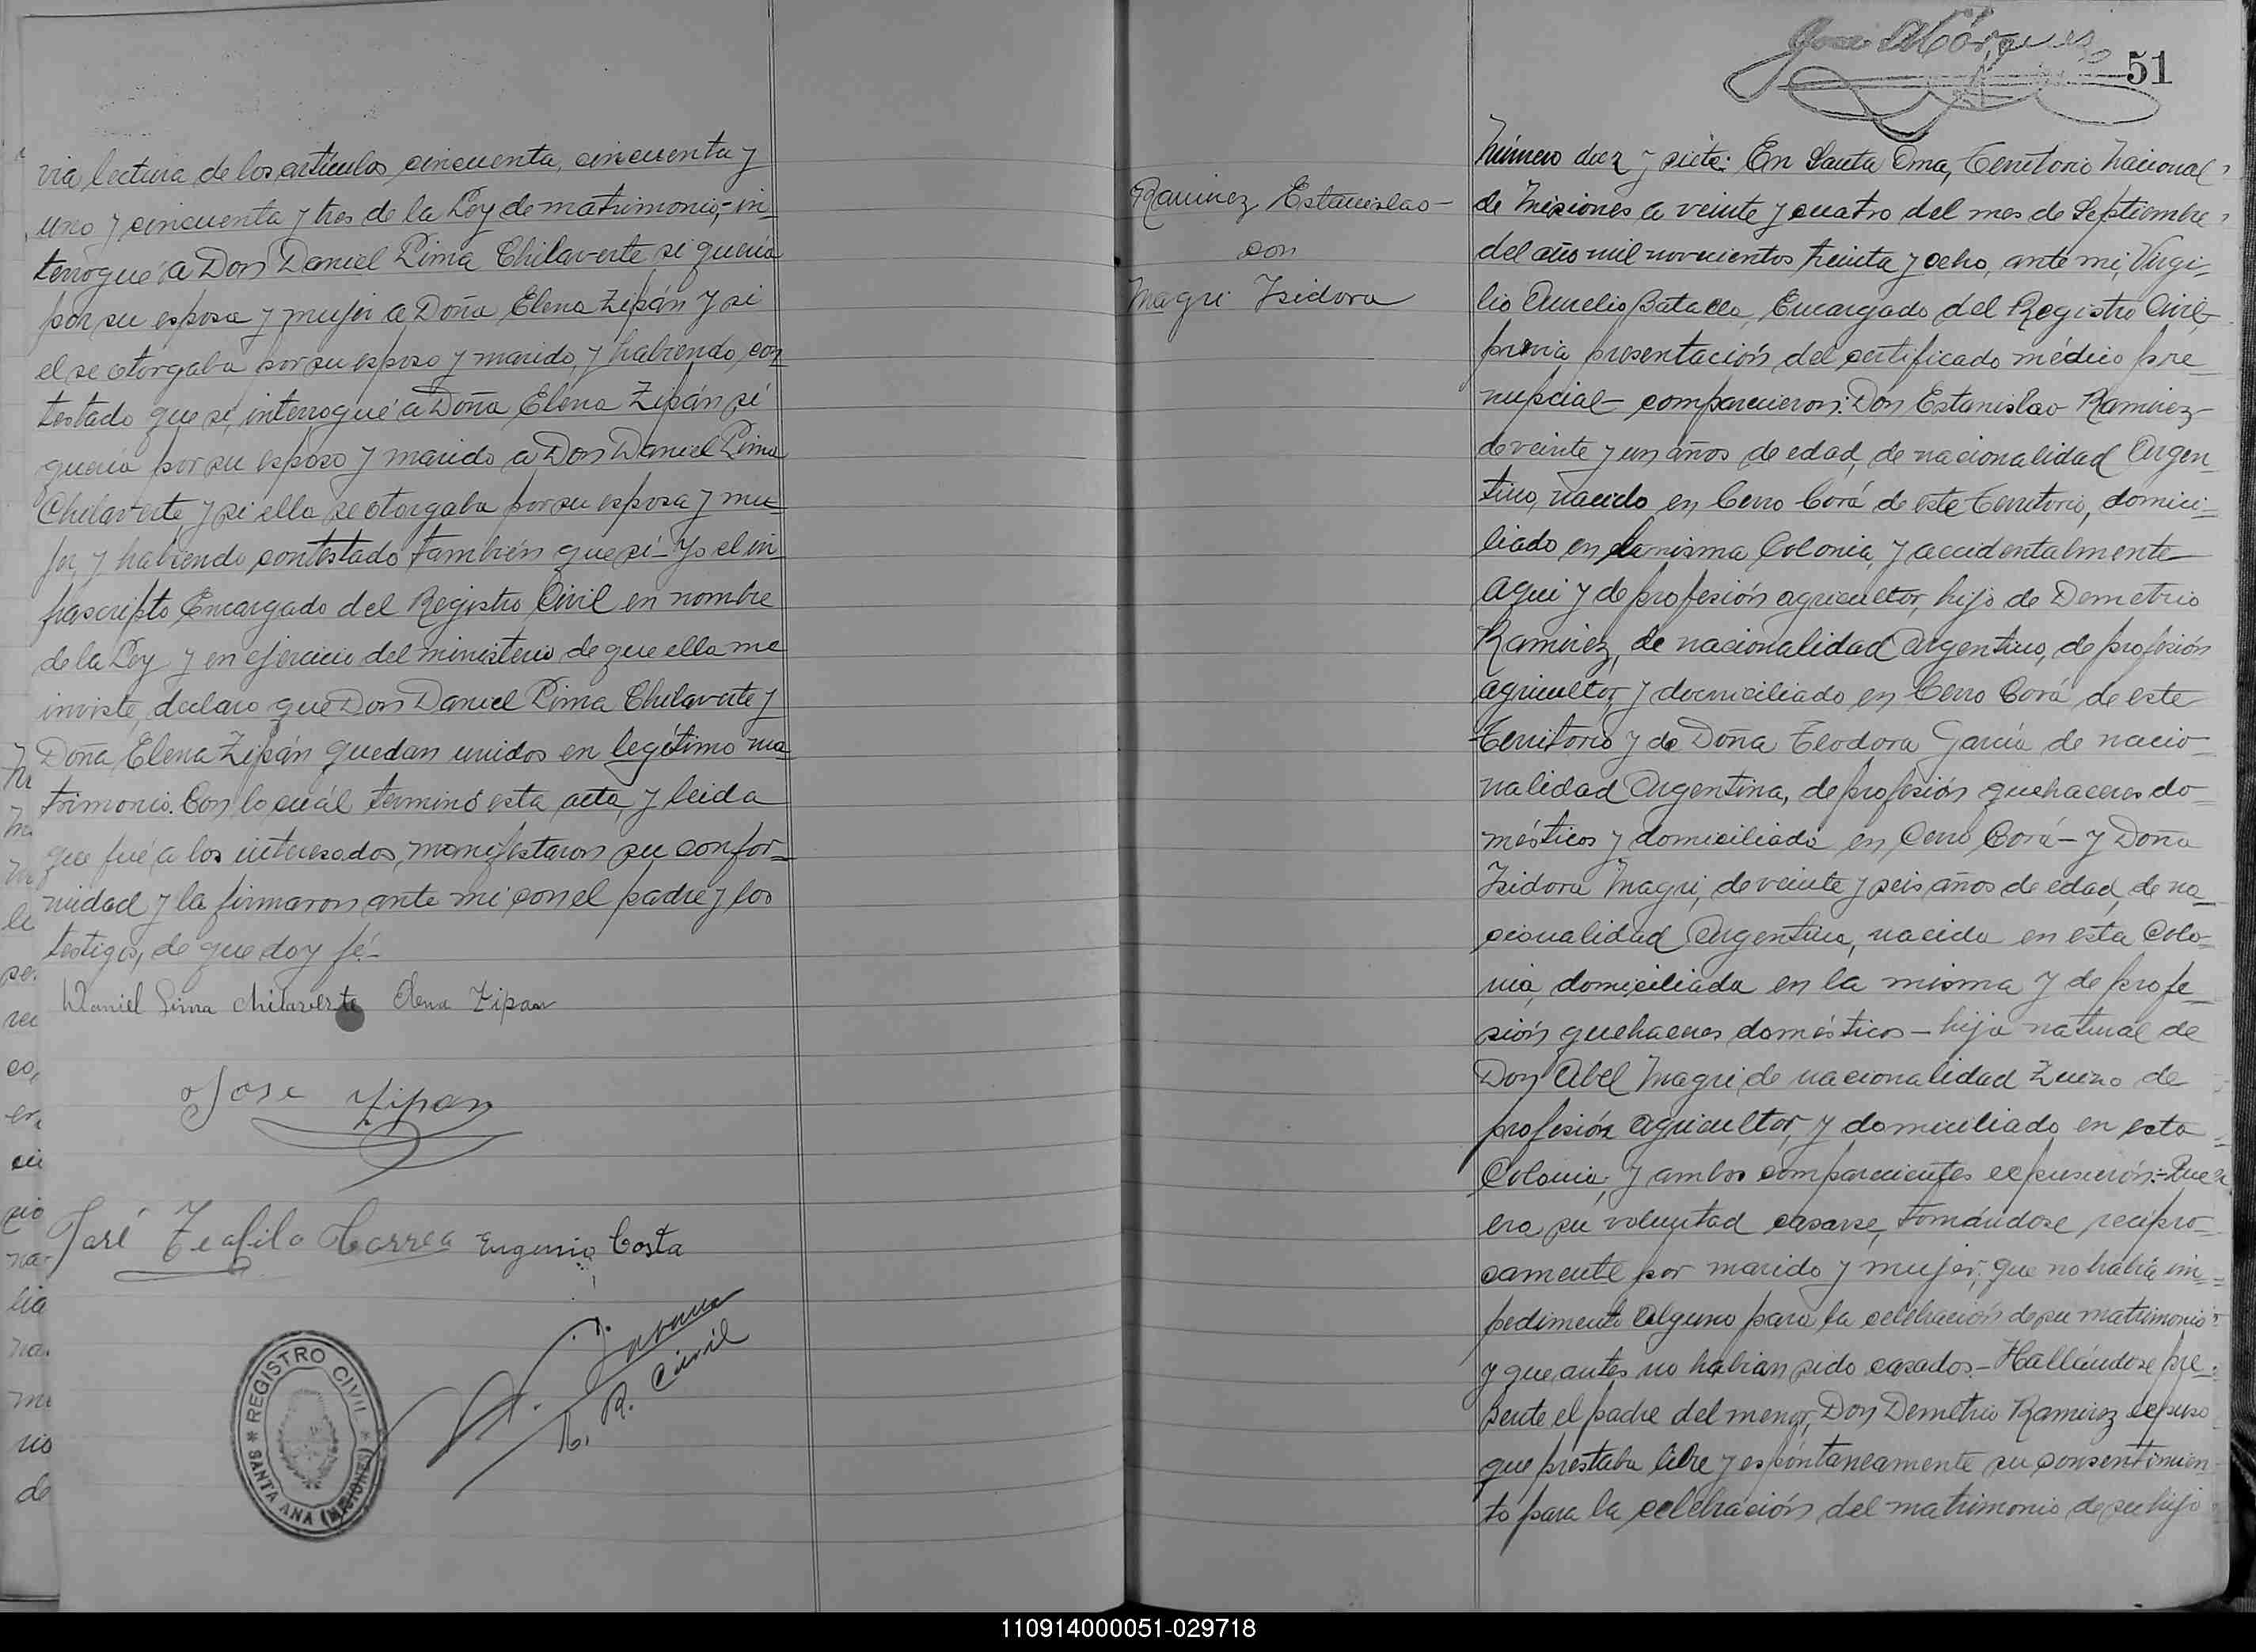 via lectura de los artículos cincuenta, cincuenta y
uno y cincuenta y tres de la Ley de matrimonio,- in-
terrogué a Don Daniel Lima Chilaverte si quería
por su esposa y mujer a Doña Elena Zipán y si
el se otorgaba por su esposo y marido, y habiendo con-
testado que si, interrogué a Doña Elena Zipán si
quería por su esposo y marido a Don Daniel Lima
Chilaverte, y si ella se otorgaba por su esposa y mu-
jer, y habiendo contestado también que si- Yo el in-
frascripto Encargado del Registro Civil en nombre
de la Ley y en ejercicio del ministerio de que ella me
inviste, declaro que Don Daniel Lima Chilaverte y
Doña Elena Zipán quedan unidos en legítimo ma-
trimonio. Con lo cuál terminó esta acta, y leida
que fué a los interesados, manifestaron su confor-
midad y la firmaron ante mi con el padre y los
testigos, de que doy fé.-
Daniel Lima Chilaverte Elena Zipan
Jose Zipan
José Teofilo Correa Eugenio Costa
R. Civil
* REGISTRO CIVIL *
SANTA ANA (MISIONES)
51
Ramirez Estanislao-
con
Magri Isidora
Número diez y siete: En Santa Ana, Territorio Nacional
de Misiones a veinte y cuatro del mes de Septiembre
del año mil novecientos treinta y ocho, ante mi, Virgi-
lio Aurelio Batalla, Encargado del Registro Civil,
previa presentación del certificado médico pre-
nupcial- comparecieron: Don Estanislao Ramirez-
de veinte y un años de edad, de nacionalidad Argen-
tino, nacido en Cerro Corá de este territorio, domici-
liado en la misma Colonia, y accidentalmente
aqui y de profesión agricultor, hijo de Demetrio
Ramirez, de nacionalidad Argentino, de profesión
agricultor, y domiciliado en Cerro Corá de este
Territorio y de Doña Teodora García de nacio-
nalidad Argentina, de profesión quehaceres do-
mésticos y domiciliada en Cerro Corá- y Doña
Isidora Magri, de veinte y seis años de edad, de na-
cionalidad Argentina, nacida en esta Colo-
nia, domiciliada en la misma y de profe-
sión quehaceres domésticos - hija natural de
Don Abel Magri de nacionalidad Zuizo de
profesión agricultor, y domiciliado en esta
Colonia; y ambos comparecientes expusierón:- Que
era su voluntad casarse, tomándose recípro-
camente por marido y mujer; que no había im-
pedimento alguno para la celebración de su matrimonio
y que antes no habían sido casados.- Hallándose pre-
sente el padre del menor, Don Demetrio Ramirez expuso
que prestaba libre y espóntaneamente su consentimien-
to para la celebración del matrimonio de su hijo
110914000051-029718